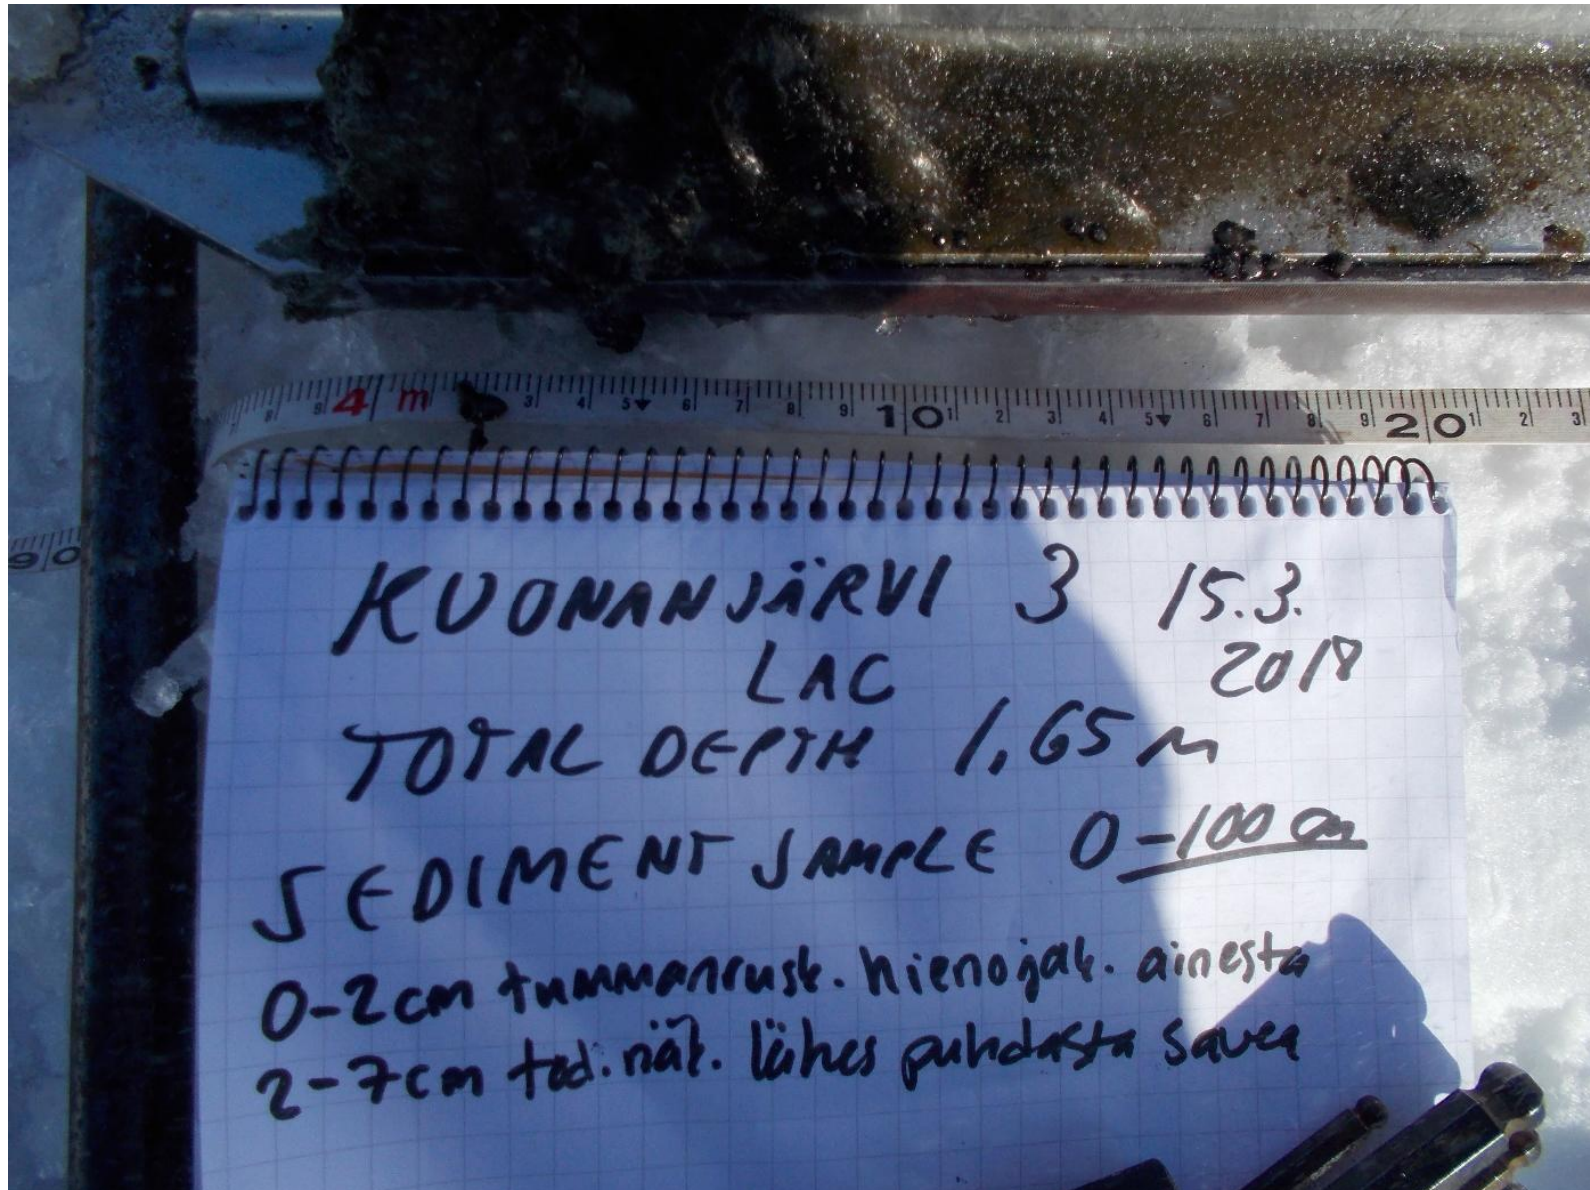 8 9 4 m 3 4 5 6 7 8 9 10 1 2 3 4 5 6 7 8 9 20 1 2 3
90
KUONANJÄRVI 3 15.3.
LAC 2018
TOTAL DEPTH 1,65 m
SEDIMENT SAMPLE 0-100 cm
0-2 cm tummanrusk. hienojak. ainesta
2-7 cm tod. näk. lähes puhdasta savea